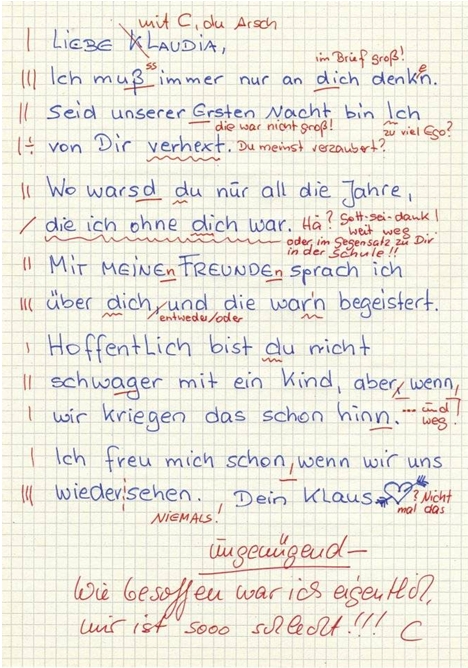 mit C, du Arsch
LIEBE KLAUDIA,
im Brief groß!
ss
e
Ich muß immer nur an dich denk'n.
Seid unserer Ersten Nacht bin Ich
die war nicht groß!
zu viel Ego?
von Dir verhext. Du meinst verzaubert?
Wo warsd du nur all die Jahre,
die ich ohne dich war. Hä? Gott-sei-dank!
weit weg
oder im Gegensatz zu Dir
in der Schule!!
MIT MEINEn FREUNDEn sprach ich
über dich, und die war'n begeistert.
entweder/oder
Hoffentlich bist du nicht
schwager mit ein Kind, aber, wenn,
wir kriegen das schon hinn. ... und
weg!
Ich freu mich schon, wenn wir uns
wiedersehen. Dein KLAUS ? Nicht
mal das
NIEMALS!
ungenügend –
Wie besoffen war ich eigentlich,
mir ist sooo schlecht!!! C